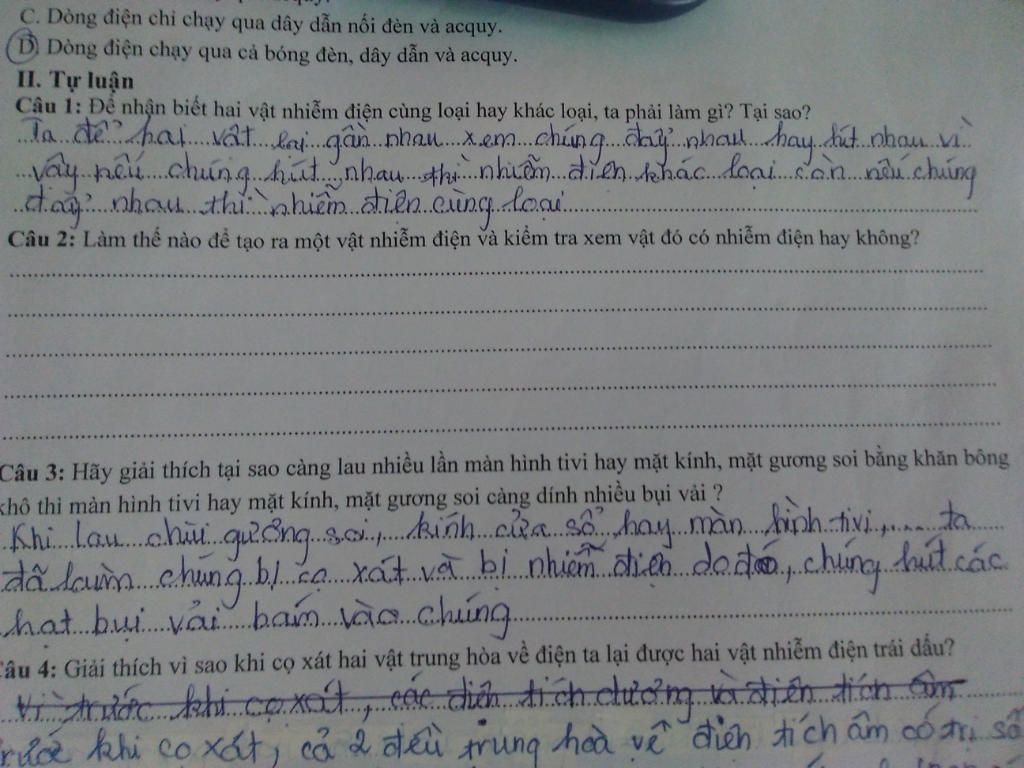 C. Dòng điện chỉ chạy qua dây dẫn nối đèn và acquy.
D. Dòng điện chạy qua cả bóng đèn, dây dẫn và acquy.
II. Tự luận
Câu 1: Để nhận biết hai vật nhiễm điện cùng loại hay khác loại, ta phải làm gì? Tại sao?
Ta để hai vật lại gần nhau xem chúng đẩy nhau hay hút nhau vì
vậy nếu chúng hút nhau thì nhiễm điện khác loại còn nếu chúng
đẩy nhau thì nhiễm điện cùng loại
Câu 2: Làm thế nào để tạo ra một vật nhiễm điện và kiểm tra xem vật đó có nhiễm điện hay không?
Câu 3: Hãy giải thích tại sao càng lau nhiều lần màn hình tivi hay mặt kính, mặt gương soi bằng khăn bông
khô thì màn hình tivi hay mặt kính, mặt gương soi càng dính nhiều bụi vải ?
Khi lau chùi gương soi, kính cửa sổ hay màn hình tivi,... ta
đã làm chúng bị cọ xát và bị nhiễm điện do đó, chúng hút các
hạt bụi vải bám vào chúng
Câu 4: Giải thích vì sao khi cọ xát hai vật trung hòa về điện ta lại được hai vật nhiễm điện trái dấu?
Vì trước khi cọ xát, các điện tích dương và điện tích âm
trước khi cọ xát, cả 2 đều trung hoà về điện tích âm có trị số